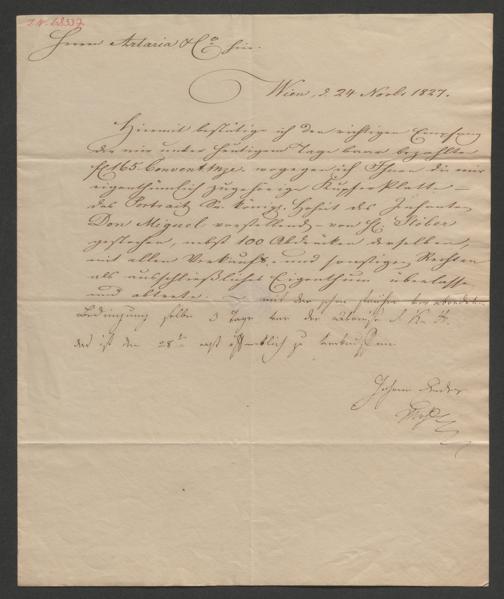 I.N. 68537
Herrn Artaria & Co hier.
Wien, d. 24 Novbr 1827.
Hiermit bestätige ich den richtigen Empfang
der mir unter heutigem Tage baar bezahlten
f 165 Convent Mze. wogegen ich Ihnen die mir
eigenthümlich zugehörige Kupferplatte –
das Portrait Sr. königl. Hoheit des Infanten
Don Miguel vorstellend – von H. Stöber
gestochen, nebst 100 Abdrücken derselben,
mit allen Verkaufs- und sonstigen Rechten
als ausschließliches Eigenthum überlasse
und abtrete. mit der
Bedingung selbe 3 Tage vor der Abreise S. K. H.
das ist den 28t erst öffentlich zu
Johann